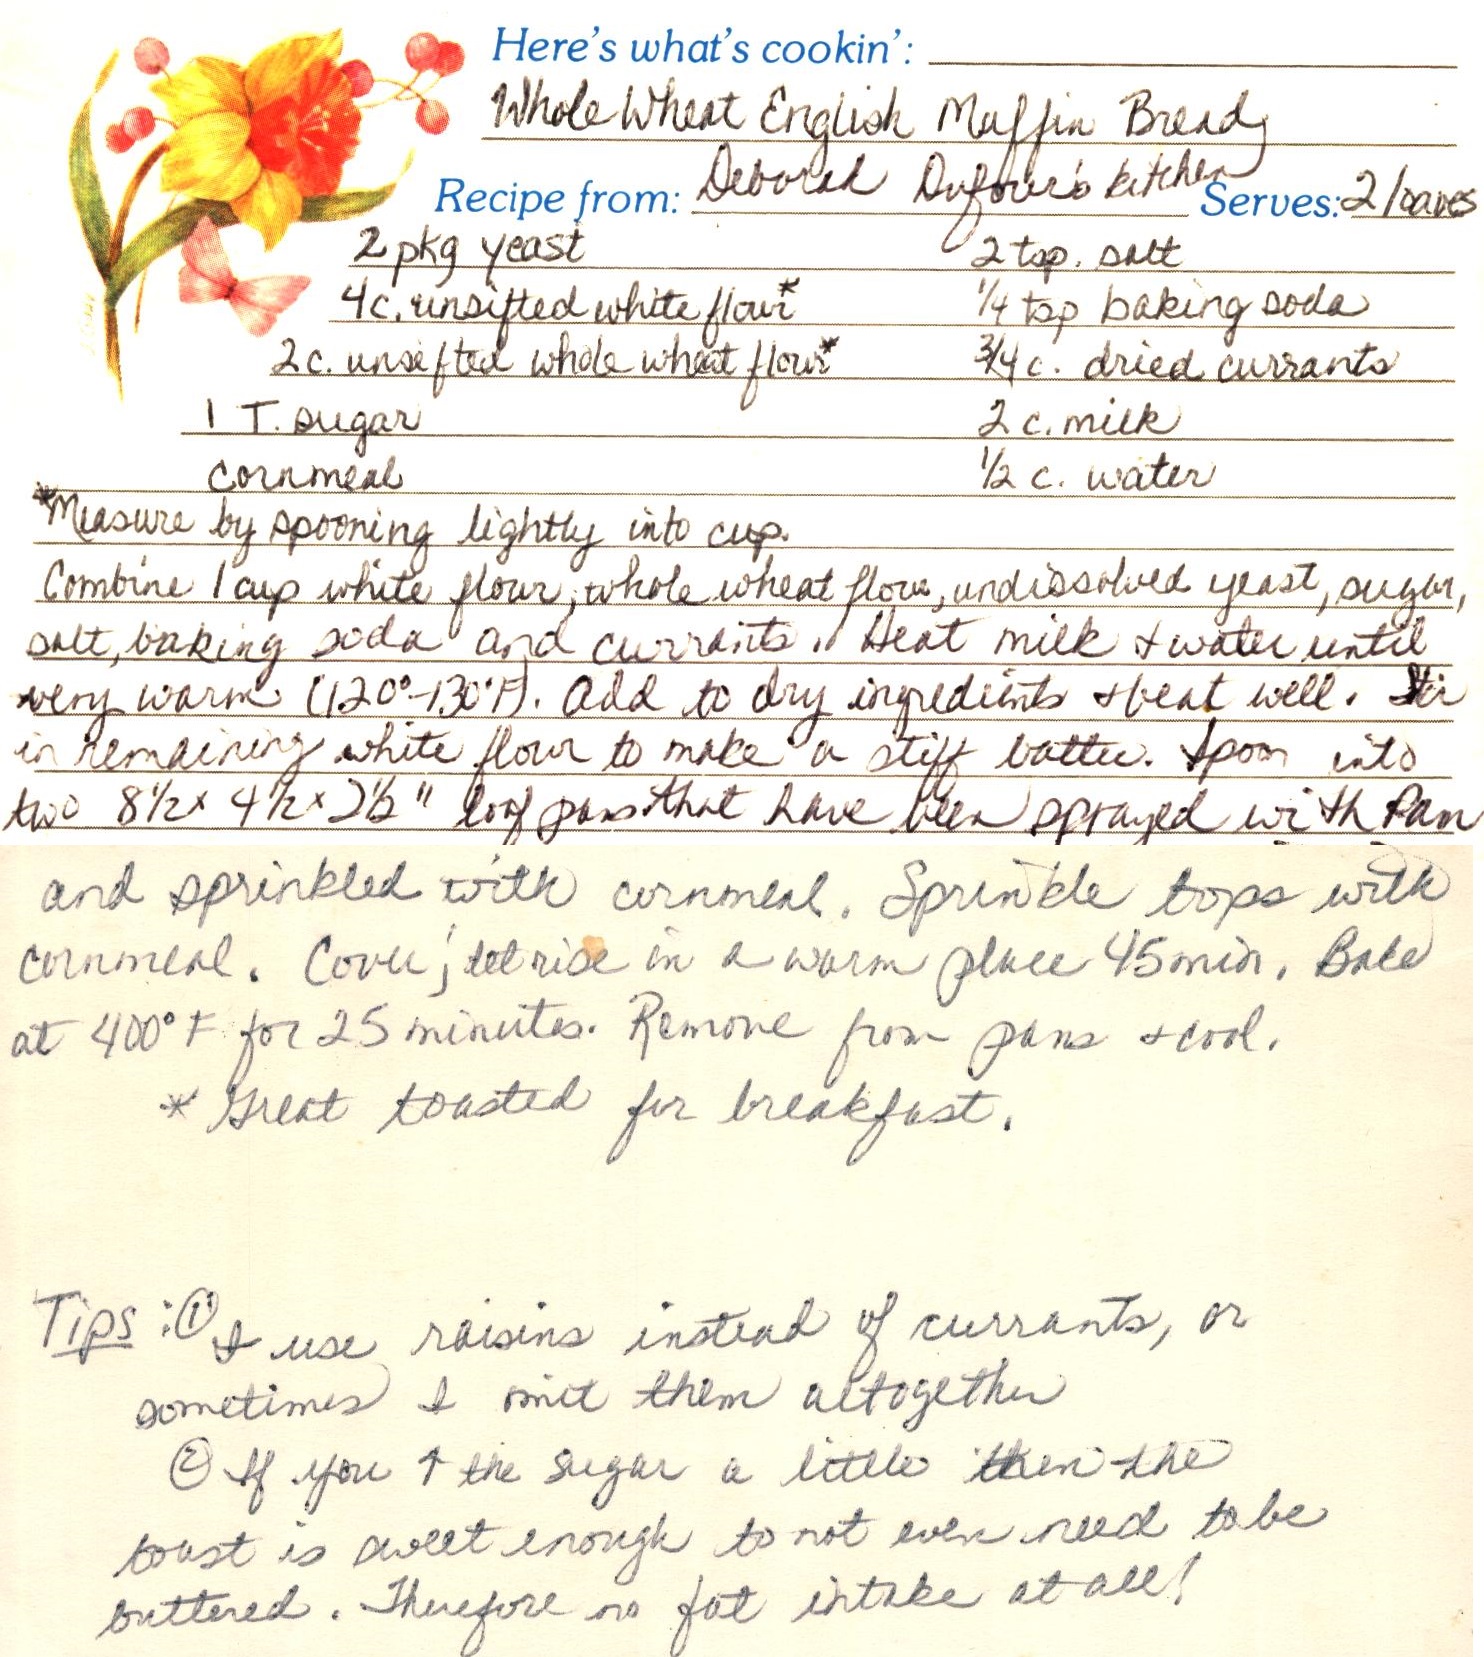 Here's what's cookin':
Whole Wheat English Muffin Bread
Recipe from: Deborah Dufour's kitchen Serves: 2 loaves
2 pkg yeast 2 tsp. salt
4 c. unsifted white flour* 1/4 tsp baking soda
2 c. unsifted whole wheat flour* 3/4 c. dried currants
1 T. sugar 2 c. milk
Cornmeal 1/2 c. water
*Measure by spooning lightly into cup.
Combine 1 cup white flour, whole wheat flour, undissolved yeast, sugar,
salt, baking soda and currants. Heat milk + water until
very warm (120°-130°F). Add to dry ingredients + beat well. Stir
in remaining white flour to make a stiff batter. Spoon into
two 8 1/2 x 4 1/2 x 2 1/2" loaf pans that have been sprayed with Pam
and sprinkled with cornmeal. Sprinkle tops with
cornmeal. Cover; let rise in a warm place 45 min. Bake
at 400°F for 25 minutes. Remove from pans + cool.
* Great toasted for breakfast.
Tips: ① I use raisins instead of currants, or
sometimes I omit them altogether
② If you ↑ the sugar a little then the
toast is sweet enough to not even need to be
buttered. Therefore no fat intake at all!